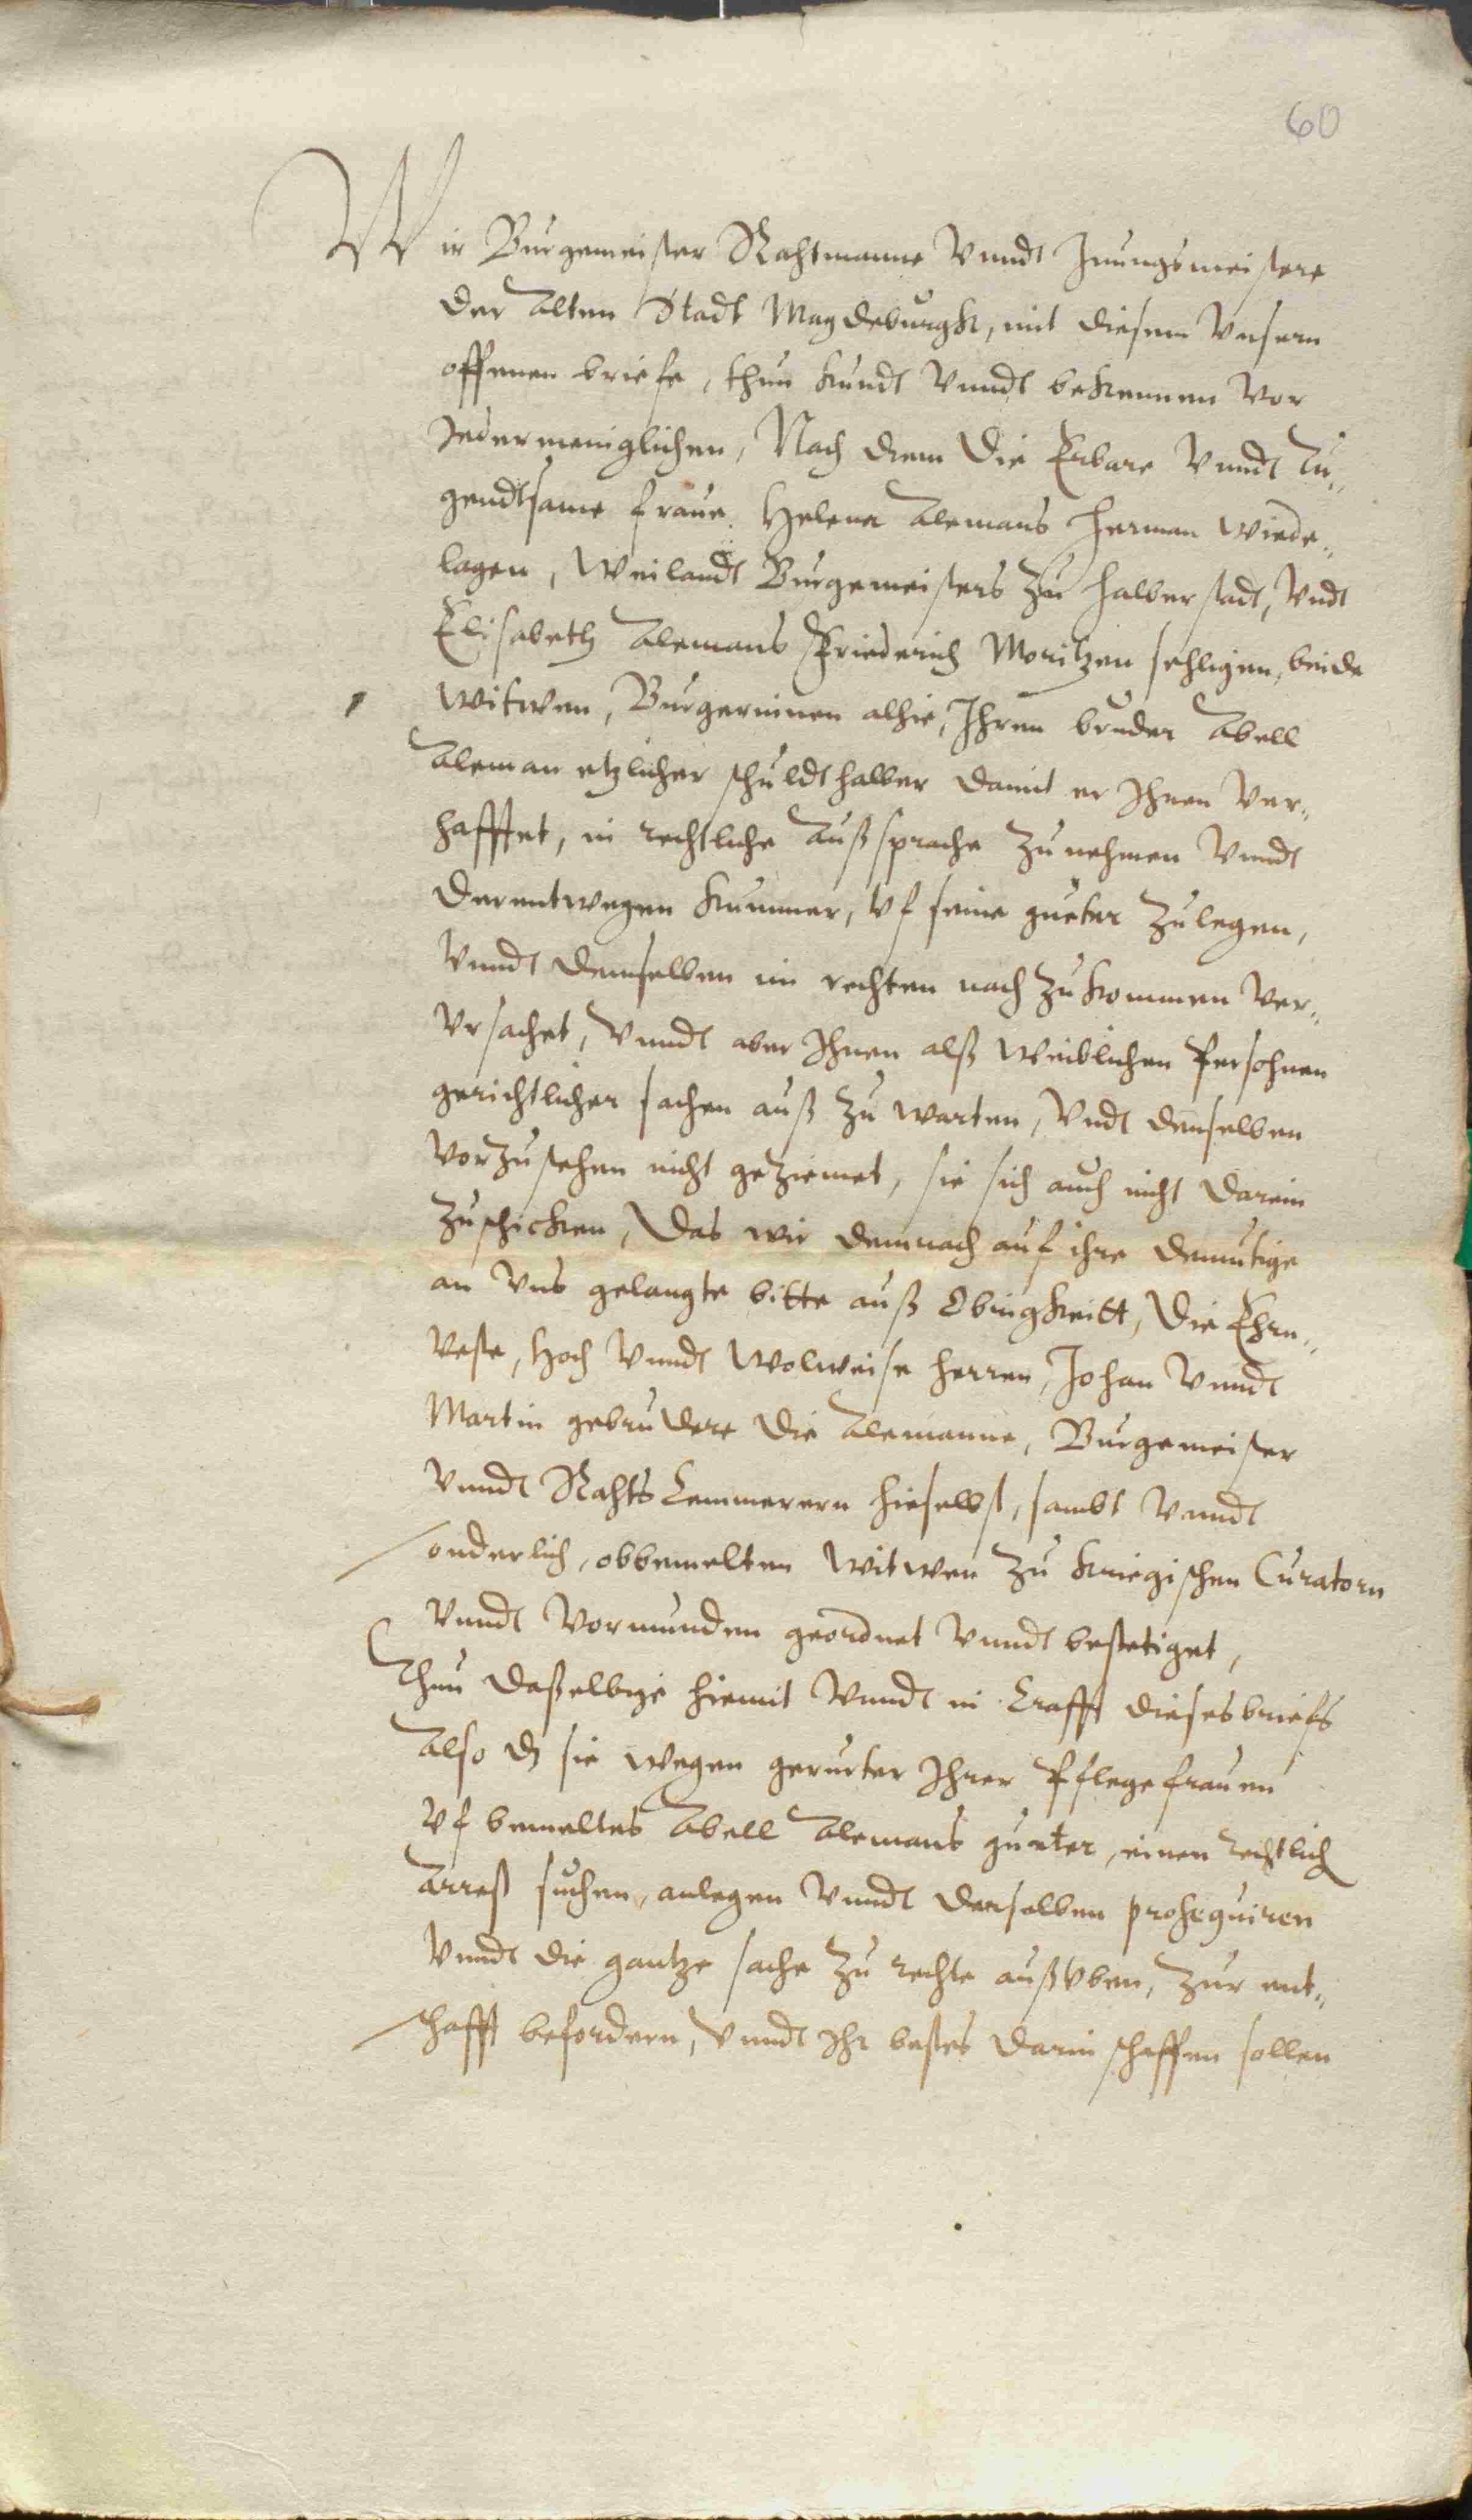 60
Wir Burgemeister Rahtmanne Vnndt Innungsmeistere
der Alten Stadt Magdeburgk, mit diesem Vnserm
offenen briefe, thun kundt Vnndt bekennen Vor
Jedermenniglichen, Nach dem die Erbare Vnndt Tu„
gendtsame fraue Helena Alemans Herman Wiede„
lagen, Weilandt Burgemeisters zu Halberstadt, Vndt
Elisabeth Alemans Friederich Moritzen sehligen, beide
Witwen, Burgerinnen alhie, Ihren bruder Abell
Aleman etzlicher schuldt halber damit er Ihnen Ver„
hafftet, in rechtliche Außsprache zu nehmen Vnndt
derentwegen kummer, Vf seine gueter zulegen,
Vnndt demselben im rechten nach zukommen Ver„
Vrsachet, Vnndt aber Ihnen alß Weiblichen Persohnen
gerichtlicher sachen auß zu warten, Vndt denselben
Vorzustehen nicht geziemet, sie sich auch nicht darein
zuschicken, Das wir demnach auf ihre demutige
an Vns gelangte bitte auß Obrigkeitt, die Ehrn„
Veste, Hoch Vnndt Wolweise Herren, Johan Vnndt
Martin gebrudere die Alemanne, Burgemeister
Vnndt Rahts Cemmerern hieselbst, sambt Vnndt
sonderlich, obbemelten Witwen zu kriegischen Curatorn
Vnndt Vormunden geordnet Vnndt bestetiget,
Thun daßelbige hiemit Vnndt in Crafft dieses briefs
Also dz sie wegen gerurter Ihrer Pflegefrauen
Vf bemeltes Abell Alemans gueter, einen rechtlich
Arrest suchen, anlegen Vnndt denselben prosequiren
Vnndt die gantze sache zu rechte außVben, zur ent„
schafft befordern, Vnndt Ihr bestes darin schaffen sollen